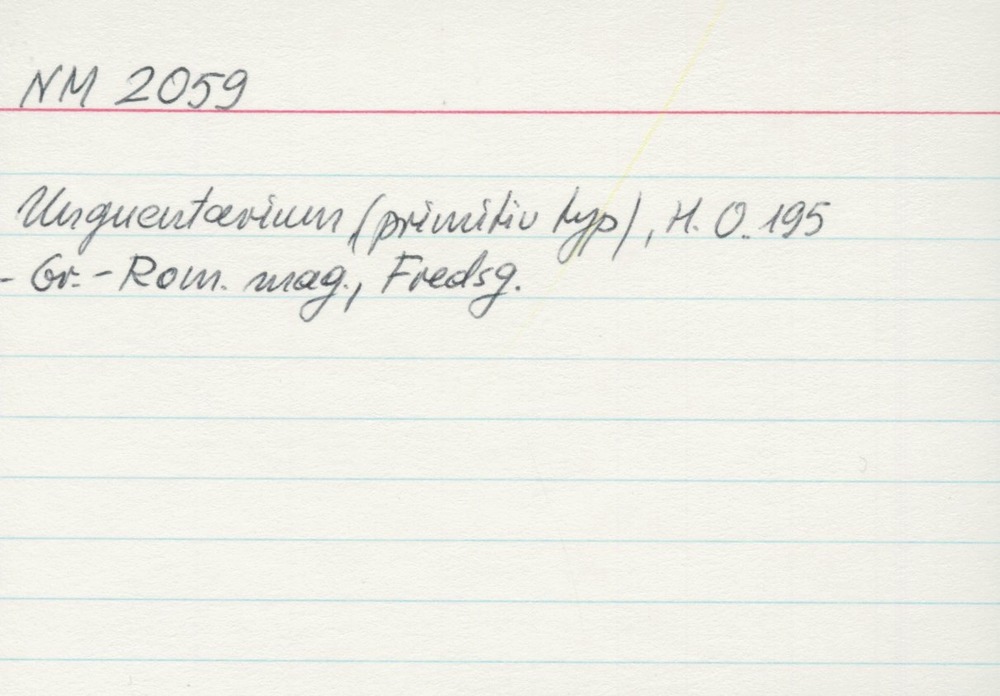 NM 2059
Unguentarium (primitiv typ), H. O. 195
- Gr.-Rom. mag., Fredsg.